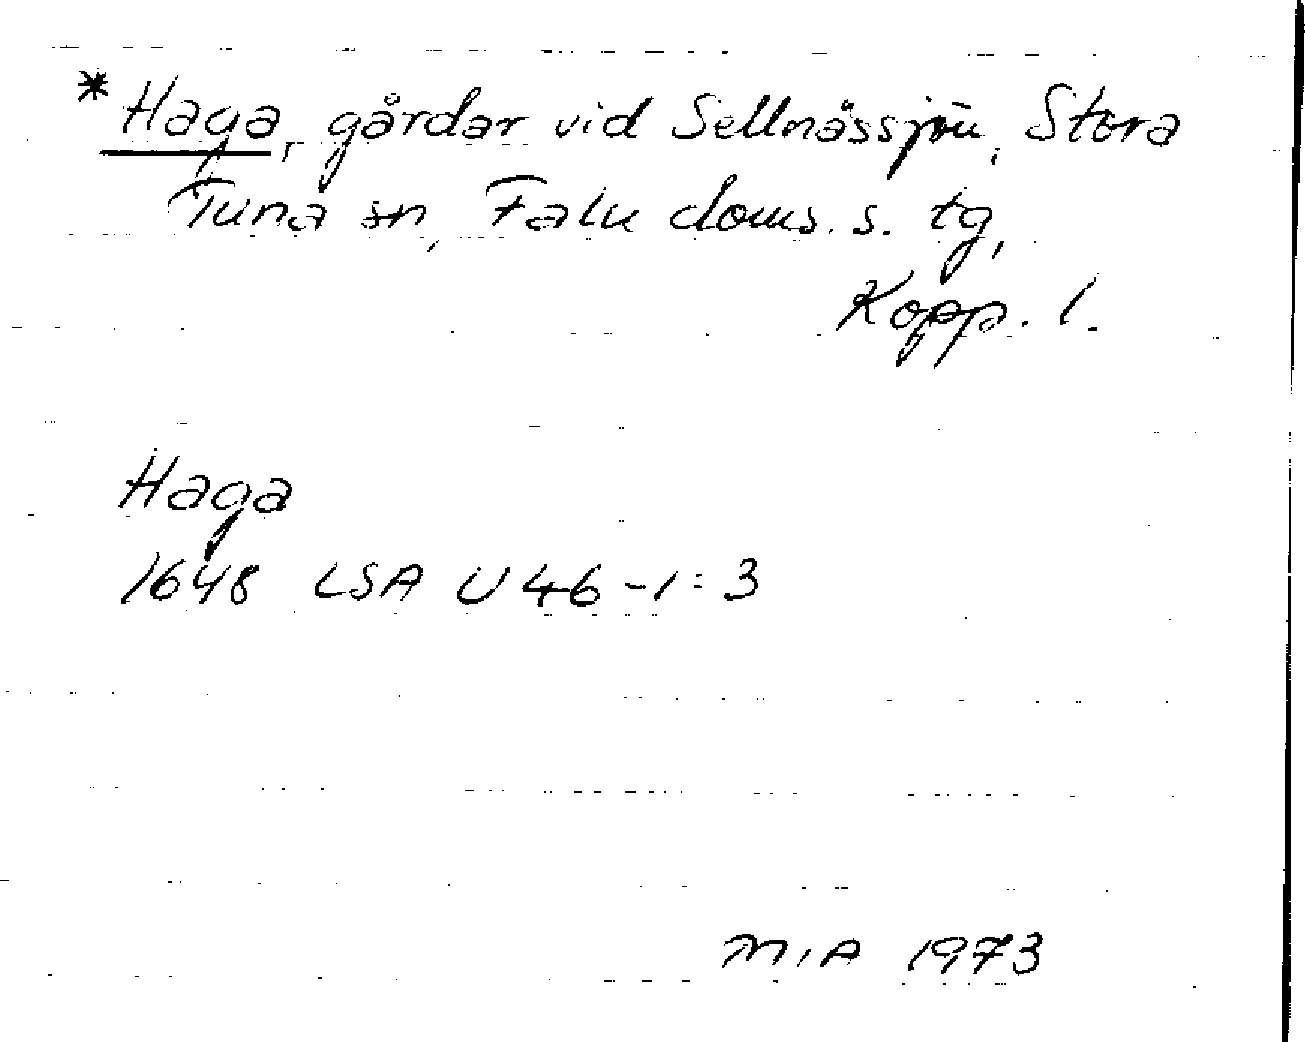 * Haga, gårdar vid Sellnässjön, Stora
Tuna sn, Falu doms. s. tg,
Kopp. l.
Haga
1648 LSA U 46-1:3
MIA 1973